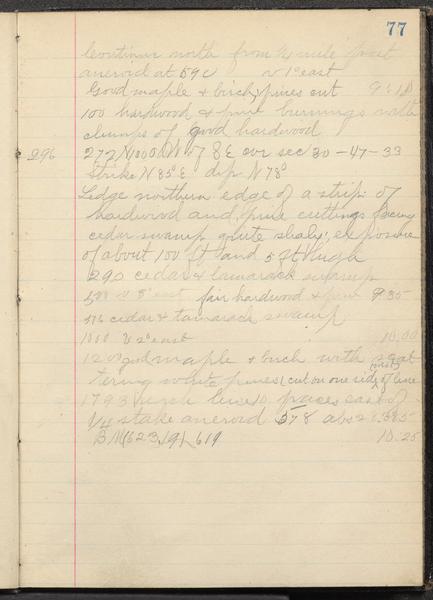 77
Continue north from 1/4 mile post
aneroid at 590 v 1° east
Good maple & birch, pines cut
100 hardwood & pine burnings with
clumps of good hardwood
296 272 N 1000 W of SE cor sec 30-47-33
Strike N 85° E dip N 78°
Ledge northern edge of a strip of
hardwood and pine cuttings facing
cedar swamp quite shaly; exposure
of about 100 ft and 5 ft high
290 cedar & tamarack swamp
v 3° east fair hardwood & pine 9.35
516 cedar & tamarack swamp
1000 v 2° east 10.00
1200 good maple & birch with scat
tering white pines (cut on one side of line mostly
1793 reach line 10 paces east of
1/4 stake aneroid 578
BM (623) 619 10.25